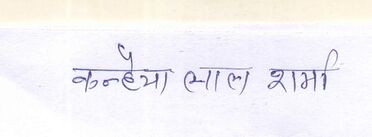 कन्हैया लाल शर्मा